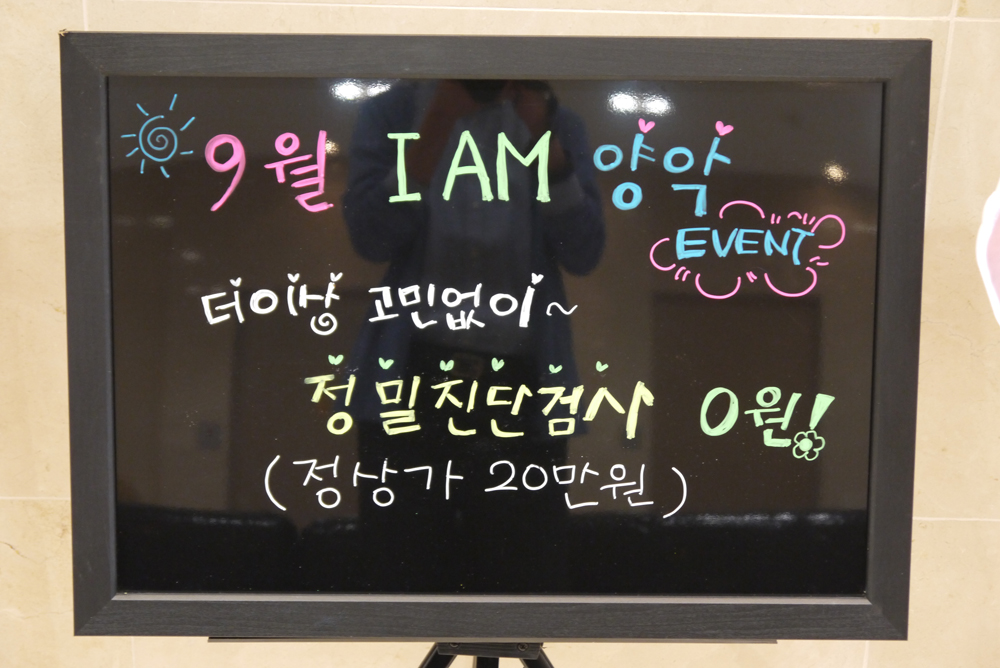 9월 I AM 양악
EVENT
더이상 고민없이~
정밀진단검사 0원!
(정상가 20만원)